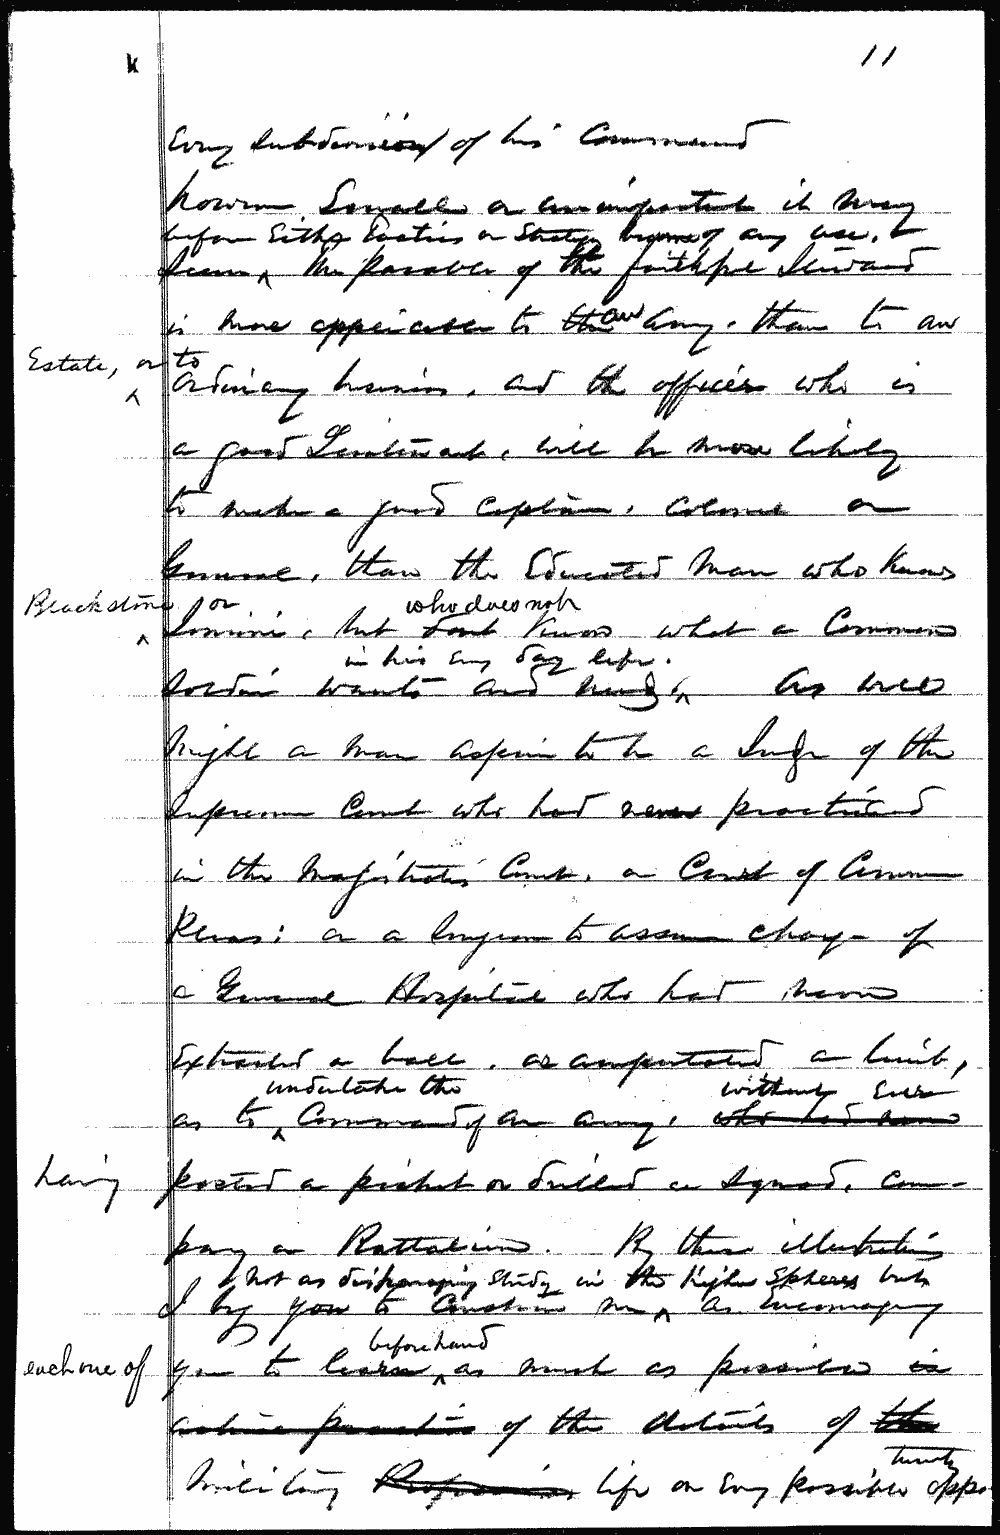 11
Every subdivision of his Command
however Small or unimportant it may
before Either Tactics or Strategy become of any use, &
Seem ^ the Parable of the faithful Steward
is more applicable to the our Army, than to an
Estate, or to
ordinary business, and the officer who is
a good Lieutenant, will be more likely
to make a good Captain, Colonel or
General, than the Educated Man who Knows
Blackstone or who does not
^ Jomini, but dont Know what a Common
in his every day life.
Soldier wants and needs ^ As well
might a man aspire to be a Judge of the
Supreme Court who had never practised
in the Magistrates Court, or Court of Common
Pleas: or a Surgeon to assume charge of
a General Hospital who had never
Extracted a ball, or amputated a limb,
undertake the without ever
as to ^ Command of an army, who had never
having posted a picket or drilled a Squad, Com-
pany or Battalion. By these illustrations
not as disparaging Study in the higher Spheres but
I beg you to Construe me ^ as Encouraging
beforehand
each one of you to learn ^ as much as possible in
active practice of the details of the
tunity
Military Profession life on every possible oppor